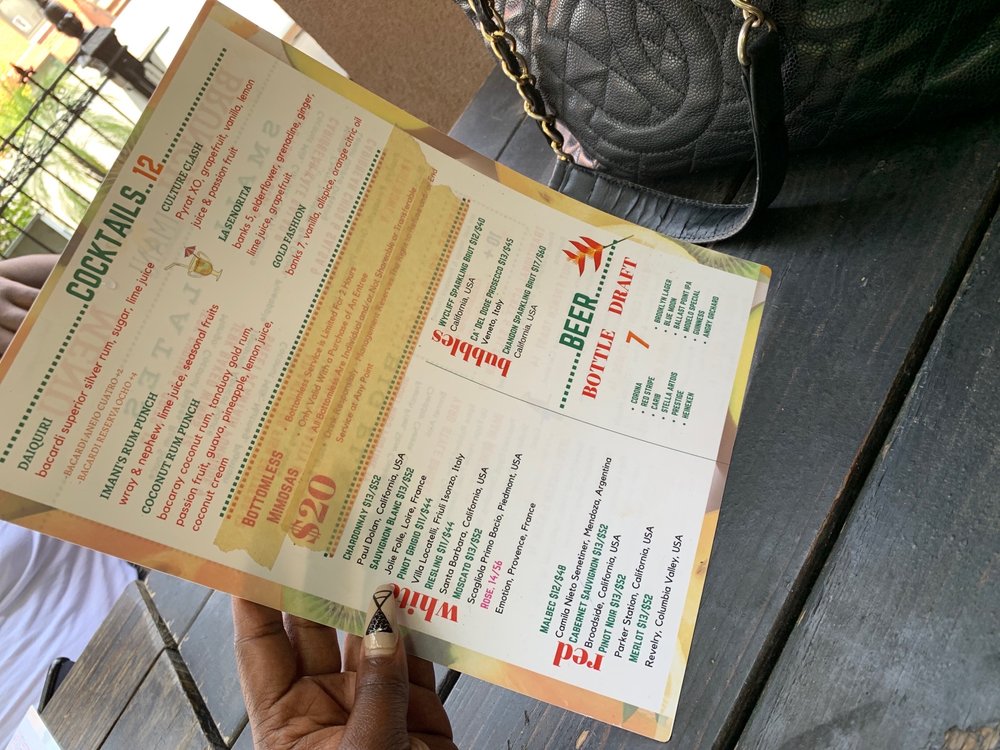 COCKTAILS..12
DAIQUIRI
bacardi superior silver rum, sugar, lime juice
-BACARDI ANEJO CUATRO +2
-BACARDI RESERVA OCHO +4
IMANI'S RUM PUNCH
wray & nephew, lime juice, seasonal fruits
COCONUT RUM PUNCH
bacaray coconut rum, tanduay gold rum,
passion fruit, guava, pineapple, lemon juice,
coconut cream
CULTURE CLASH
Pyrat XO, grapefruit, vanilla, lemon
juice & passion fruit
LA SENORITA
banks 5, elderflower, grenadine, ginger,
lime juice, grapefruit
GOLD FASHION
banks 7, vanilla, allspice, orange citric oil
BOTTOMLESS
MIMOSAS
$20
Bottomless Service is Limited For 2 Hours
Only Valid With a Purchase of An Entree
All Bottomless Are Individual and are Not Shareable or Transferable
Drink Responsibly
Service at Any Point
white
CHARDONNAY $13/$52
Paul Dolan, California, USA
SAUVIGNON BLANC $13/$52
Jolie Folle, Loire, France
PINOT GRIGIO $11/$44
Villa Locatelli, Friuli Isonzo, Italy
RIESLING $11/$44
Santa Barbara, California, USA
MOSCATO $13/$52
Scagliola Primo Bacio, Piedmont, USA
ROSE, 14/56
Emotion, Provence, France
bubbles
WYCLIFF SPARKLING BRUT $12/$40
California, USA
CA' DEL DOGE PROSECCO $13/$45
Veneto, Italy
CHANDON SPARKLING BRUT $17/$60
California, USA
red
MALBEC $12/$48
Camila Nieto Senetiner, Mendoza, Argentina
CABERNET SAUVIGNON $13/$52
Broadside, California, USA
PINOT NOIR $13/$52
Parker Station, California, USA
MERLOT $13/$52
Revelry, Columbia Valley, USA
BEER
BOTTLE DRAFT
7
• CORONA
• RED STRIPE
• CARIB
• STELLA ARTOIS
• PRESTIGE
• HEINEKEN
• BROOKLYN LAGER
• BLUE MOON
• BALLAST POINT IPA
• MODELO SPECIAL
• GUINNESS
• ANGRY ORCHARD